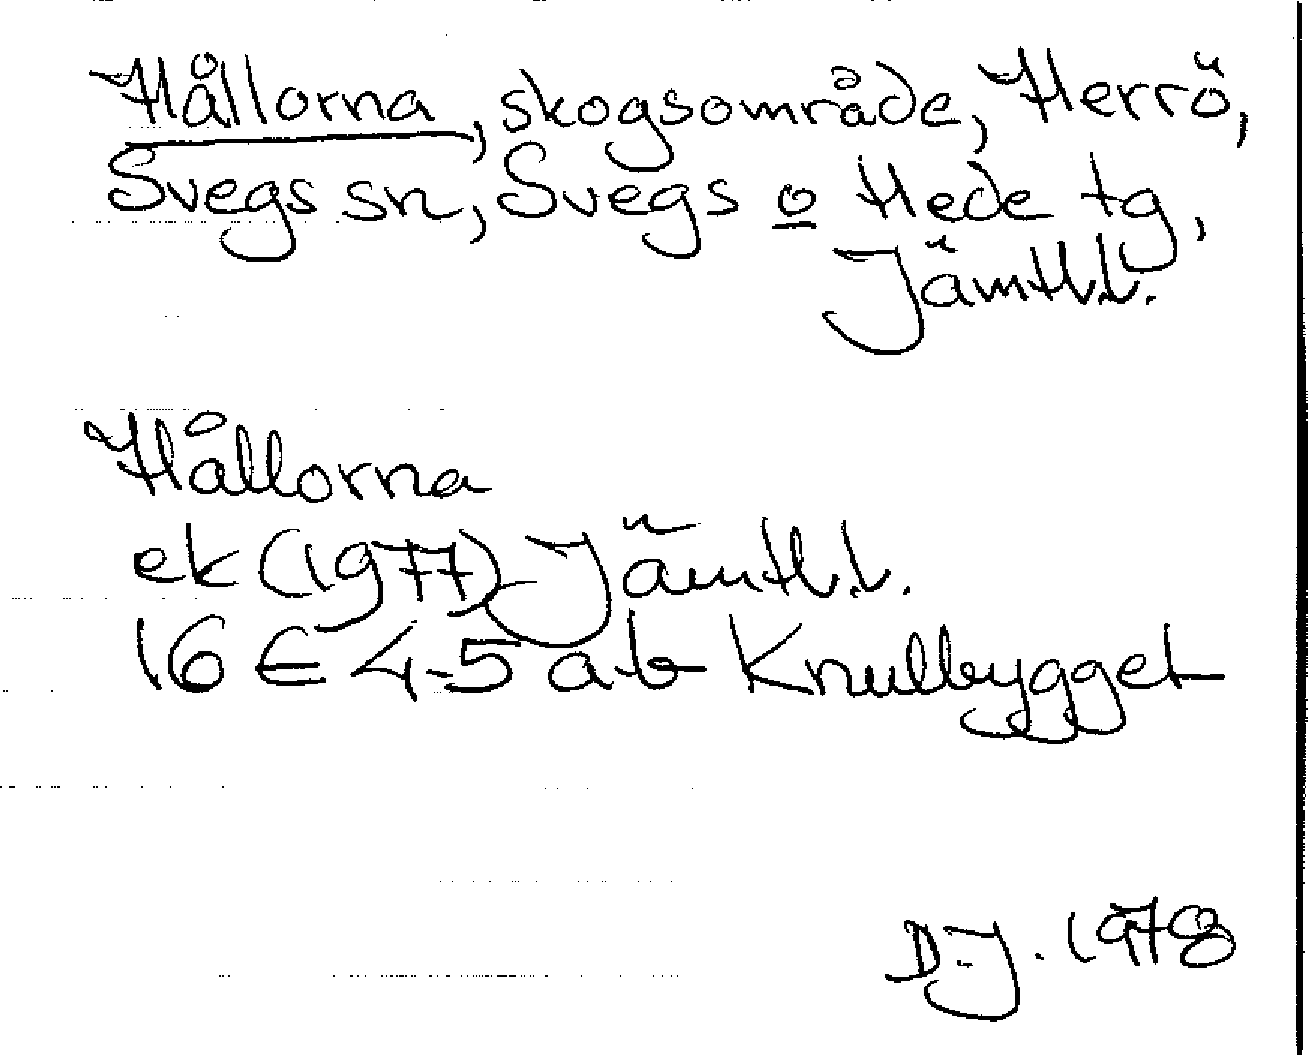 Hållorna, skogsområde, Herrö,
Svegs sn, Svegs o Hede tg,
Jämtl.l.
Hållorna
ek (1977) Jämtl.l.
16 E 4-5 a-b Knullbygget
D-J. 1978